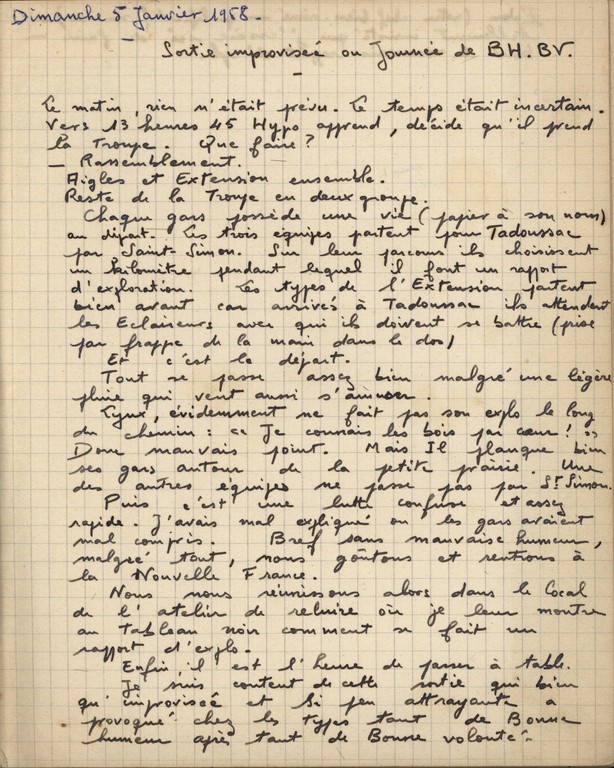 Dimanche 5 Janvier 1958.
Sortie improviseé ou Journée de BH. BV.
Le matin, rien n'était prévu. Le temps était incertain.
Vers 13 heures 45 Hypo apprend, décide qu'il prend
la Troupe. Que faire?
— Rassemblement.
Aigles et Extension ensemble.
Reste de la Troupe en deux groupe.
Chaque gars possède une vie (papier à son nom)
au départ. Les trois équipes partent pour Tadoussac
par Saint-Simon. Sur leur parcours ils choisissent
un kilomètre pendant lequel il font un rapport
d'exploration. Les types de l'Extension partent
bien avant car arrivés à Tadoussac ils attendent
les Eclaireurs avec qui ils doivent se battre (prise
par frappe de la main dans le dos)
Et c'est le départ.
Tout se passe assez bien malgré une légère
pluie qui veut aussi s'amuser.
Lynx, évidemment ne fait pas son explo le long
du chemin : "Je connais les bois par cœur!"
Donc mauvais point. Mais Il planque bien
ses gars autour de la petite prairie. Une
des autres équipes ne passe pas par St Simon.
Puis c'est une lutte confuse et assez
rapide. J'avais mal expliqué ou les gars avaient
mal compris. Bref sans mauvaise humeur,
malgré tout, nous goûtons et rentrons à
la Nouvelle France.
Nous nous réunissons alors dans le Local
de l'atelier de reliure où je leur montre
au Tableau noir comment se fait un
rapport d'explo.
Enfin, il est l'heure de passer à table.
Je suis content de cette sortie qui bien
qu'improviseé et si peu attrayante a
provoqué chez les types tant de Bonne
humeur après tant de Bonne volonté.